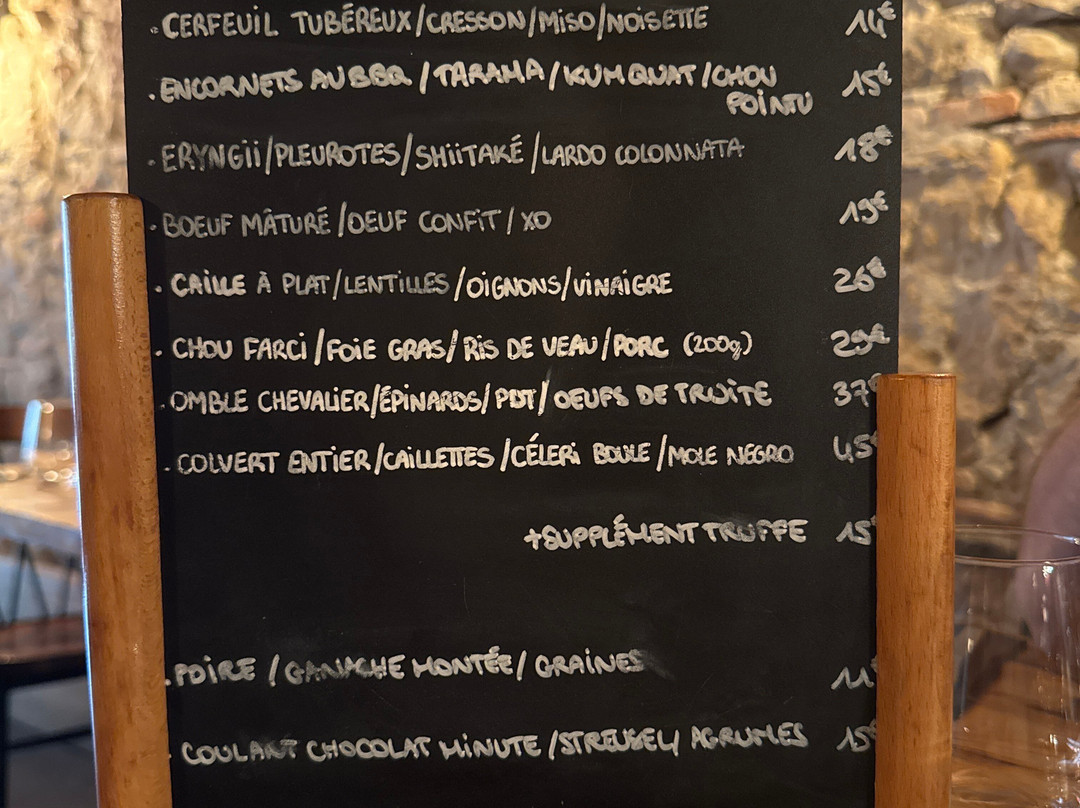 · CERFEUIL TUBÉREUX/CRESSON/MISO/NOISETTE 14€
· ENCORNETS AU BBQ / TARAMA / KUMQUAT / CHOU 15€
POINTU
· ERYNGII/PLEUROTES/SHIITAKÉ/LARDO COLONNATA 18€
· BOEUF MÂTURÉ/OEUF CONFIT/XO 19€
· CAILLE À PLAT/LENTILLES/OIGNONS/VINAIGRE 26€
· CHOU FARCI/FOIE GRAS/RIS DE VEAU/PORC (200g) 29€
· OMBLE CHEVALIER/ÉPINARDS/PDT/OEUFS DE TRUITE 37€
· COLVERT ENTIER/CAILLETTES/CÉLERI BOULE/MOLE NEGRO 45€
+SUPPLÉMENT TRUFFE 15€
· POIRE / GANACHE MONTÉE / GRAINES 11€
· COULANT CHOCOLAT MINUTE/STREUSEL/AGRUMES 15€